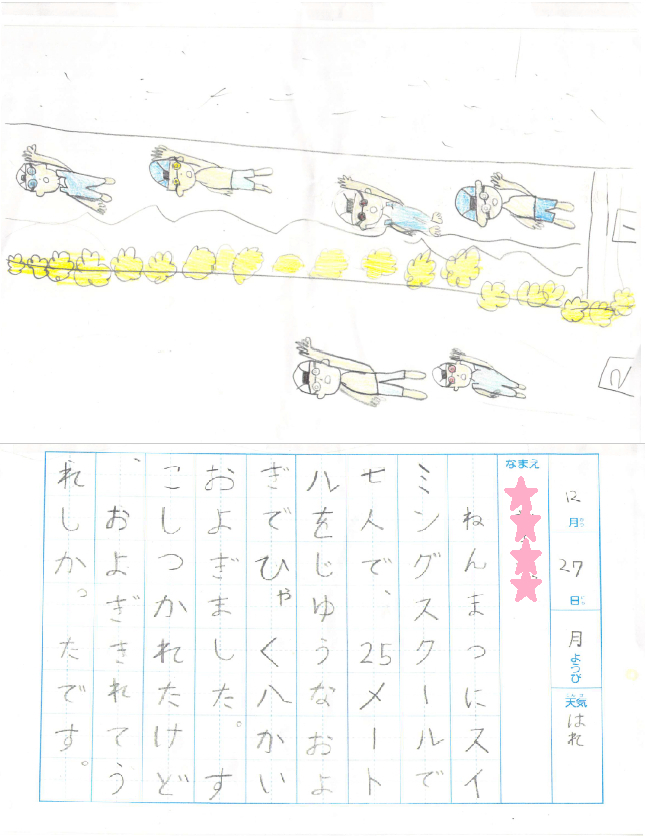 1
2
12月27日
月ようび
天気 はれ
なまえ
ねんまつにスイ
ミングスクールで
七人で、25メート
ルをじゆうなおよ
ぎでひゃく八かい
およぎました。す
こしつかれたけど
、およぎきれてう
れしかったです。